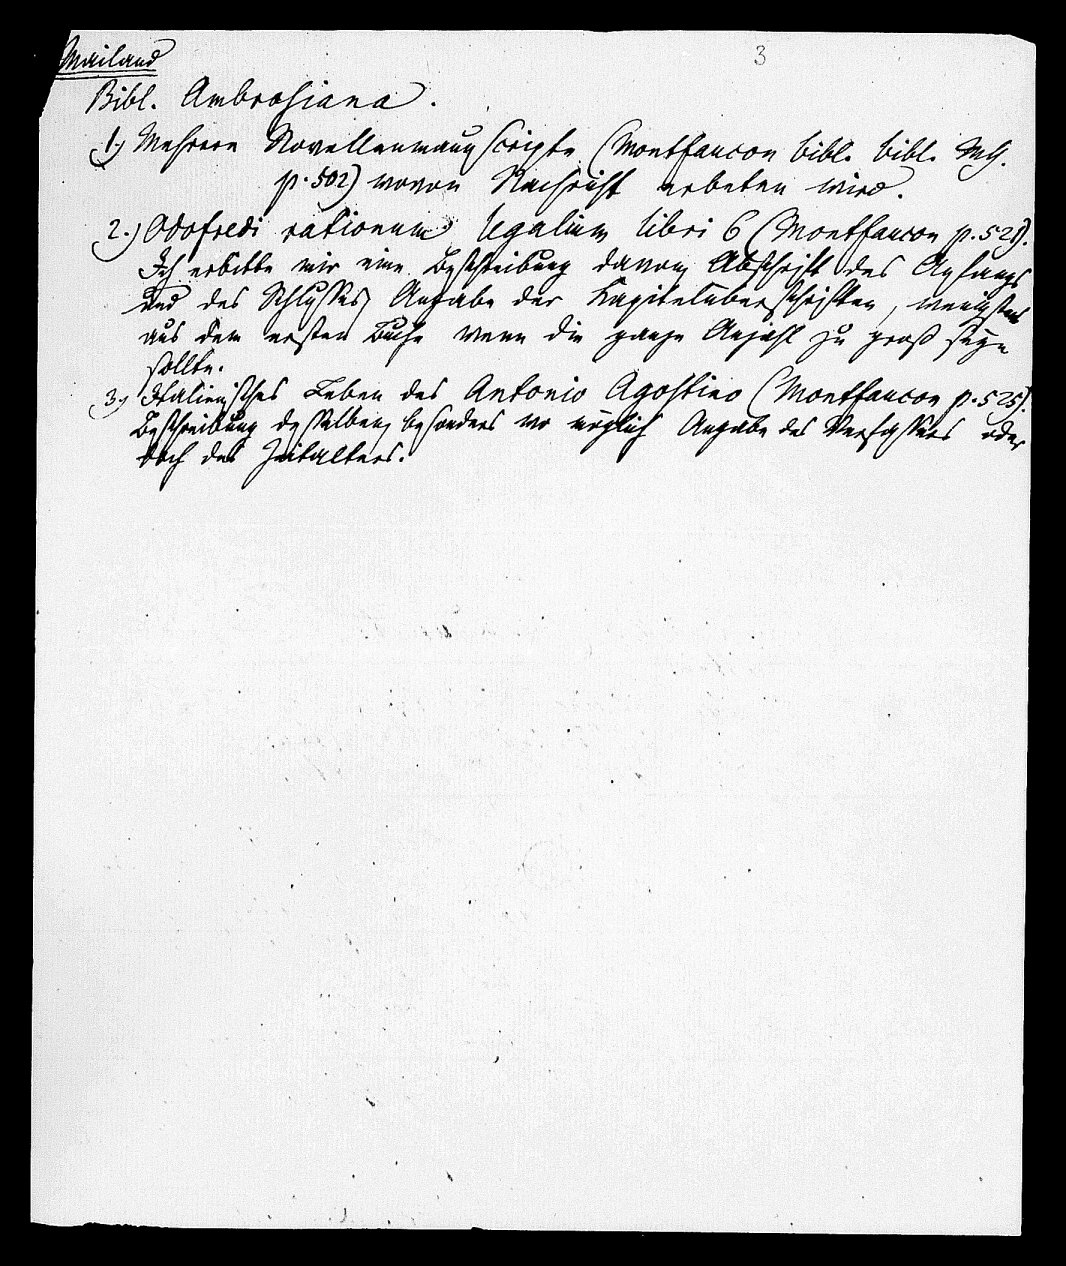 3
Mailand
Bibl. Ambrosiana.
1.) Mehrere Novellenmanuscripte (Montfaucon bibl. bibl. Msc.
p. 502) wovon Nachricht erbeten wird.
2.) Odofredi rationum legalium libri 6 (Montfaucon p. 521).
Ich erbitte mir eine Beschreibung davon, Abschrift des Anfangs
und des Schlusses, Angabe der Kapitelüberschriften, wenigstens
aus dem ersten Buche wenn die ganze Anzahl zu groß seyn
sollte.
3.) Italienisches Leben des Antonio Agostino (Montfaucon p. 525).
Beschreibung desselben, besonders wo möglich Angabe des Verfassers oder
doch des Zeitalters.